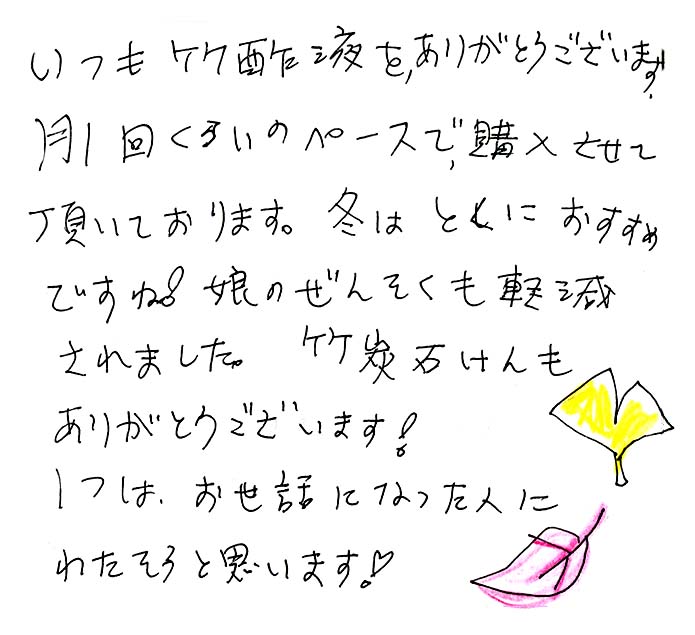 いつも竹酢液を、ありがとうございます。
月1回くらいのペースで、購入させて
頂いております。冬はとくにおすすめ
ですね！娘のぜんそくも軽減
されました。竹炭石けんも
ありがとうございます！
1つは、お世話になった人に
わたそうと思います！♡